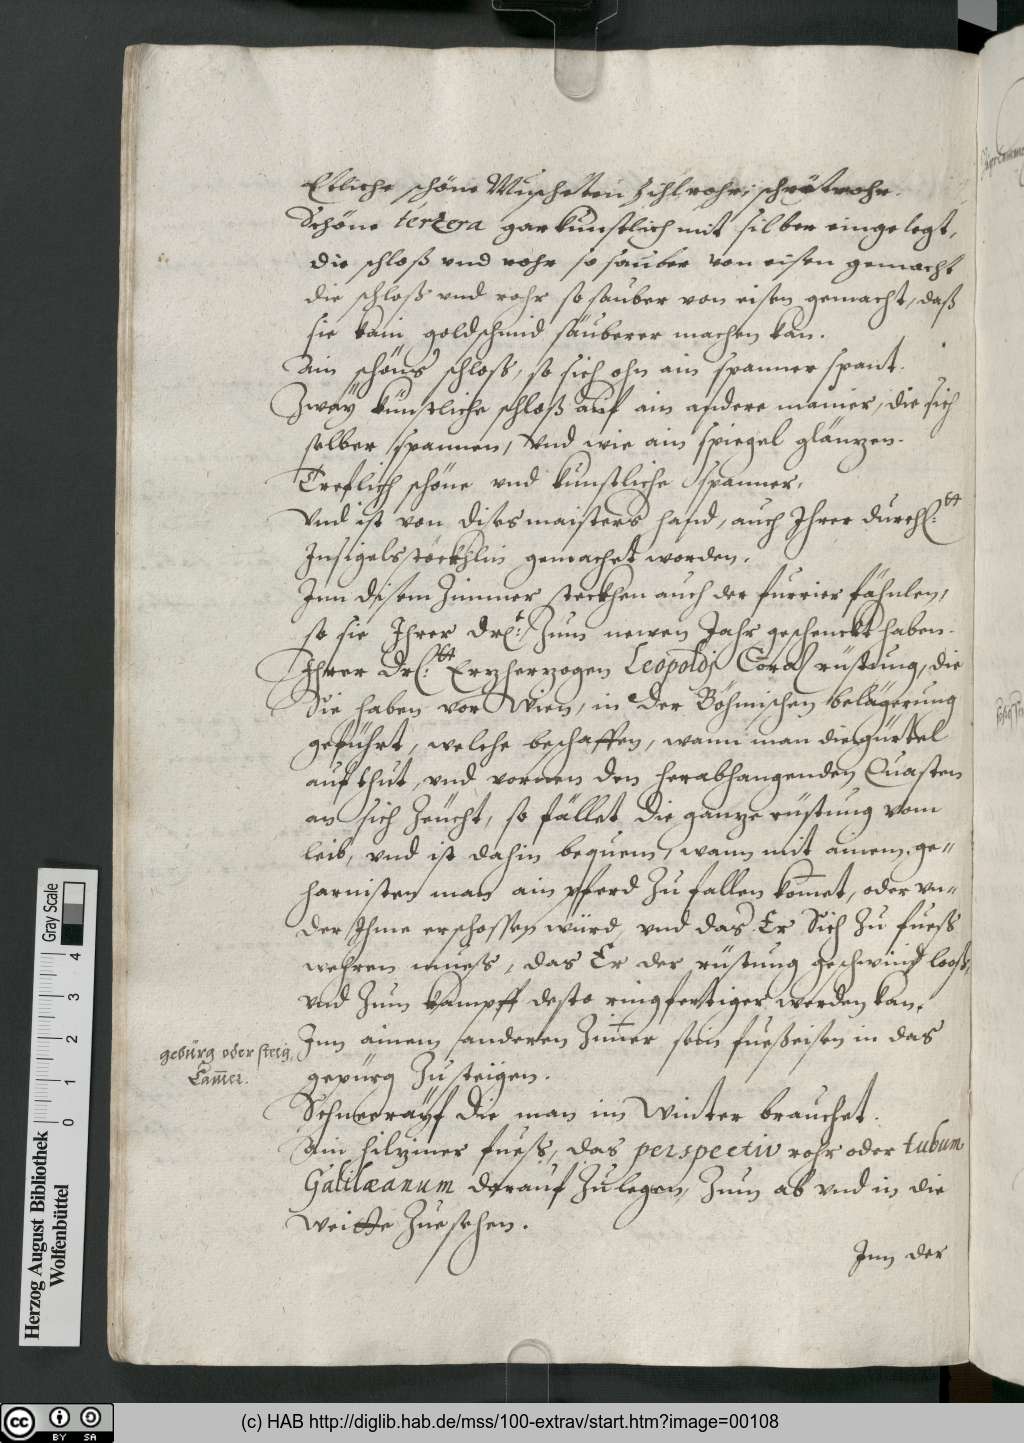 Etliche schöne Muscheten Zihlrohr, schrötrohr.
Schöne terzera gar kunstlich mit silber eingelegt,
die schloß vnd rohr so sauber von eisen gemacht
die schloß vnd rohr so sauber von eisen gemacht, daß
sie kain goldschmid säuberer machen kan.
Ain schöns schloß, so sich ohn ain spanner spant.
Zway künstliche schloß auf ain andere manier, die sich
selber spannen, vnd wie ain spiegel glänzen.
Treflich schöne vnd kunstliche Spanner,
Vnd ist von dises maisters hand, auch Ihrer Durchl: tt
Insigelstöckhlin gemachet worden.
Inn disem Zimmer steckhen auch der furrier fähnlen,
so sie Ihrer Drl:t Zum newen Jahr geschenckt haben.
Ihrer Drl:tt Erzherzogen Leopoldj rüstung, die
Sie haben vor Wien, in der Böhmischen belägerung
geführt, welche beschaffen, wann man die gürtel
aufthut, vnd vornen den herabhangenden Quasten
an sich Zeücht, so fället die ganze rüstung vom
leib, vnd ist dahin bequem, wann mit ainem ge=
harnisten man ain pferd Zu fallen kom̄et, oder vn=
der Ihme erschossen würd, vnd das Er Sich Zu fueß
wehren mueß, das Er der rüstung geschwind looß,
vnd Zum kampff desto ringfertiger werden kan.
Inn ainem anderen Zim̄er sein fueßeisen in das
gebürg oder steig
Cam̄er.
gepürg Zu steigen.
Schneerayf die man im Winter brauchet.
Ain hilziner fueß, das perspectiv rohr oder tubum
Galilæanum darauf Zu legen, Zum ab vnd in die
Weitte Zuesehen.
Inn der
Herzog August Bibliothek
Wolfenbüttel
0 1 2 3 4
Gray Scale
cc BY SA
(c) HAB http://diglib.hab.de/mss/100-extrav/start.htm?image=00108